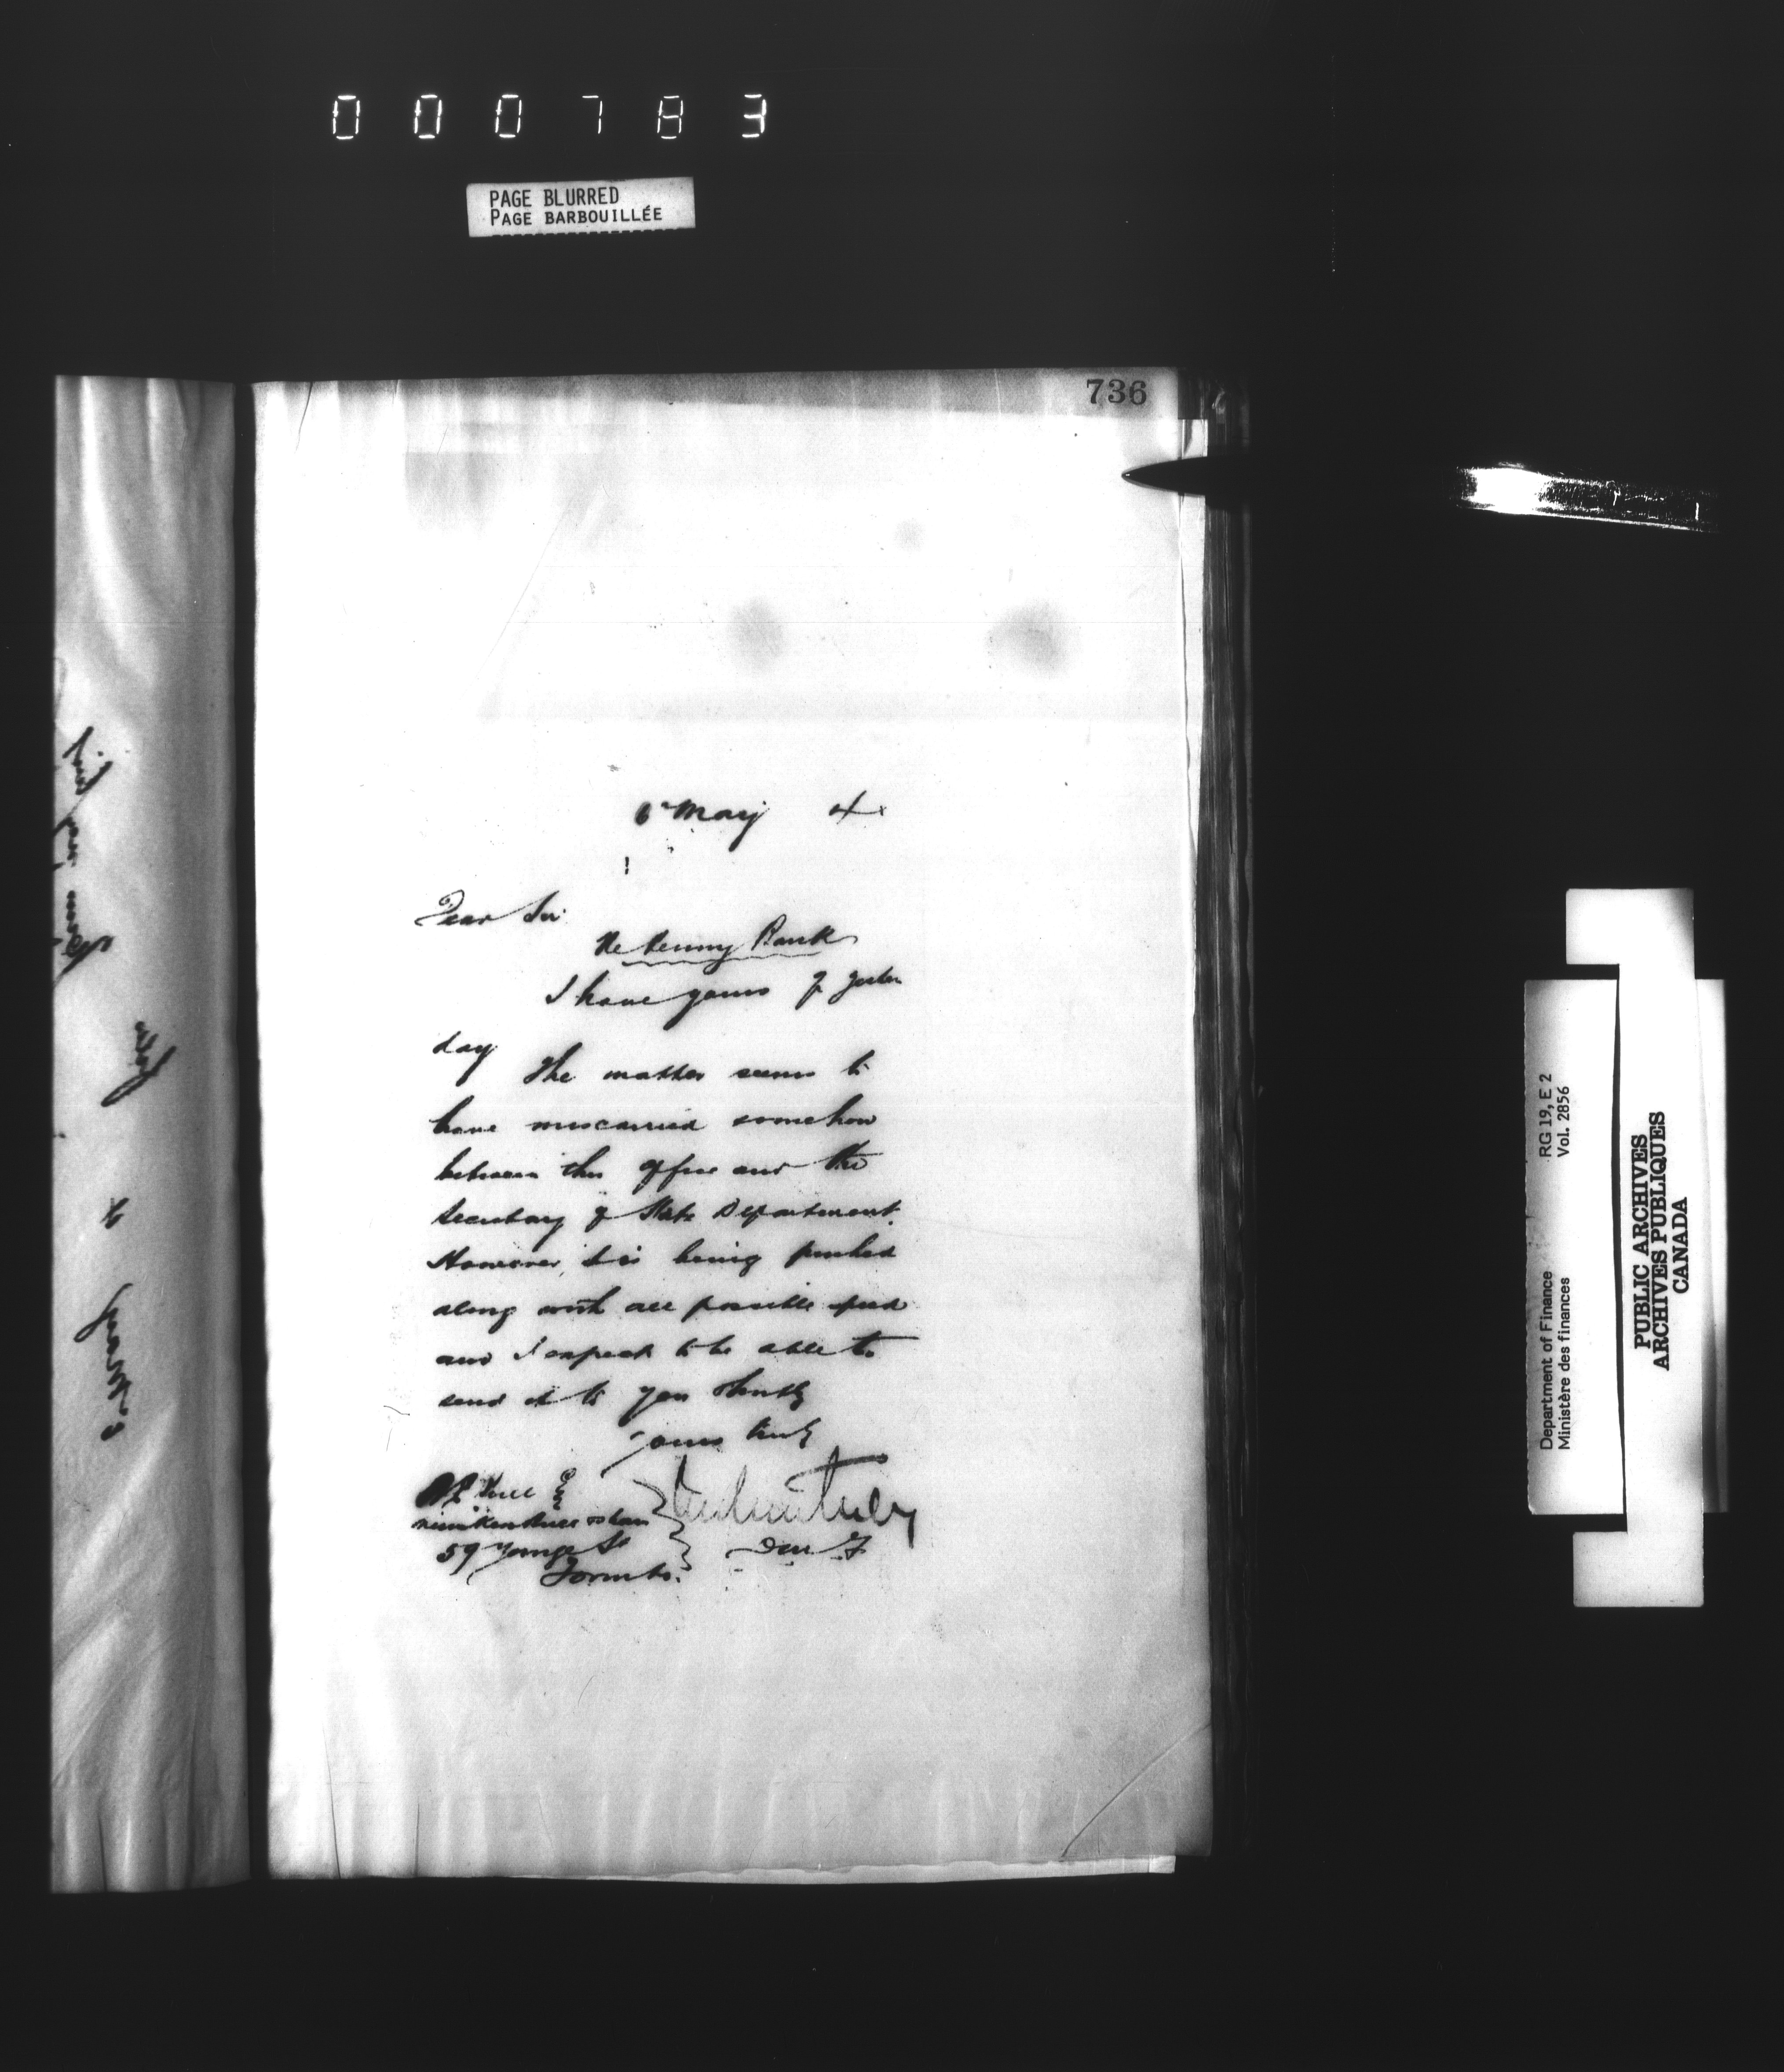 000783
PAGE BLURRED
PAGE BARBOUILLÉE
736
6 May 4
Dear Sir
Re Penny Bank
I have yours of yester
day The matter seems to
have miscarried somehow
between this office and the
Secretary of State Department.
However, it is being pushed
along with all possible speed
and I expect to be able to
send it to you shortly
Yours truly
59 Yonge St
Toronto.
RG 19, E 2
Vol. 2856
Department of Finance
Ministère des finances
PUBLIC ARCHIVES
ARCHIVES PUBLIQUES
CANADA